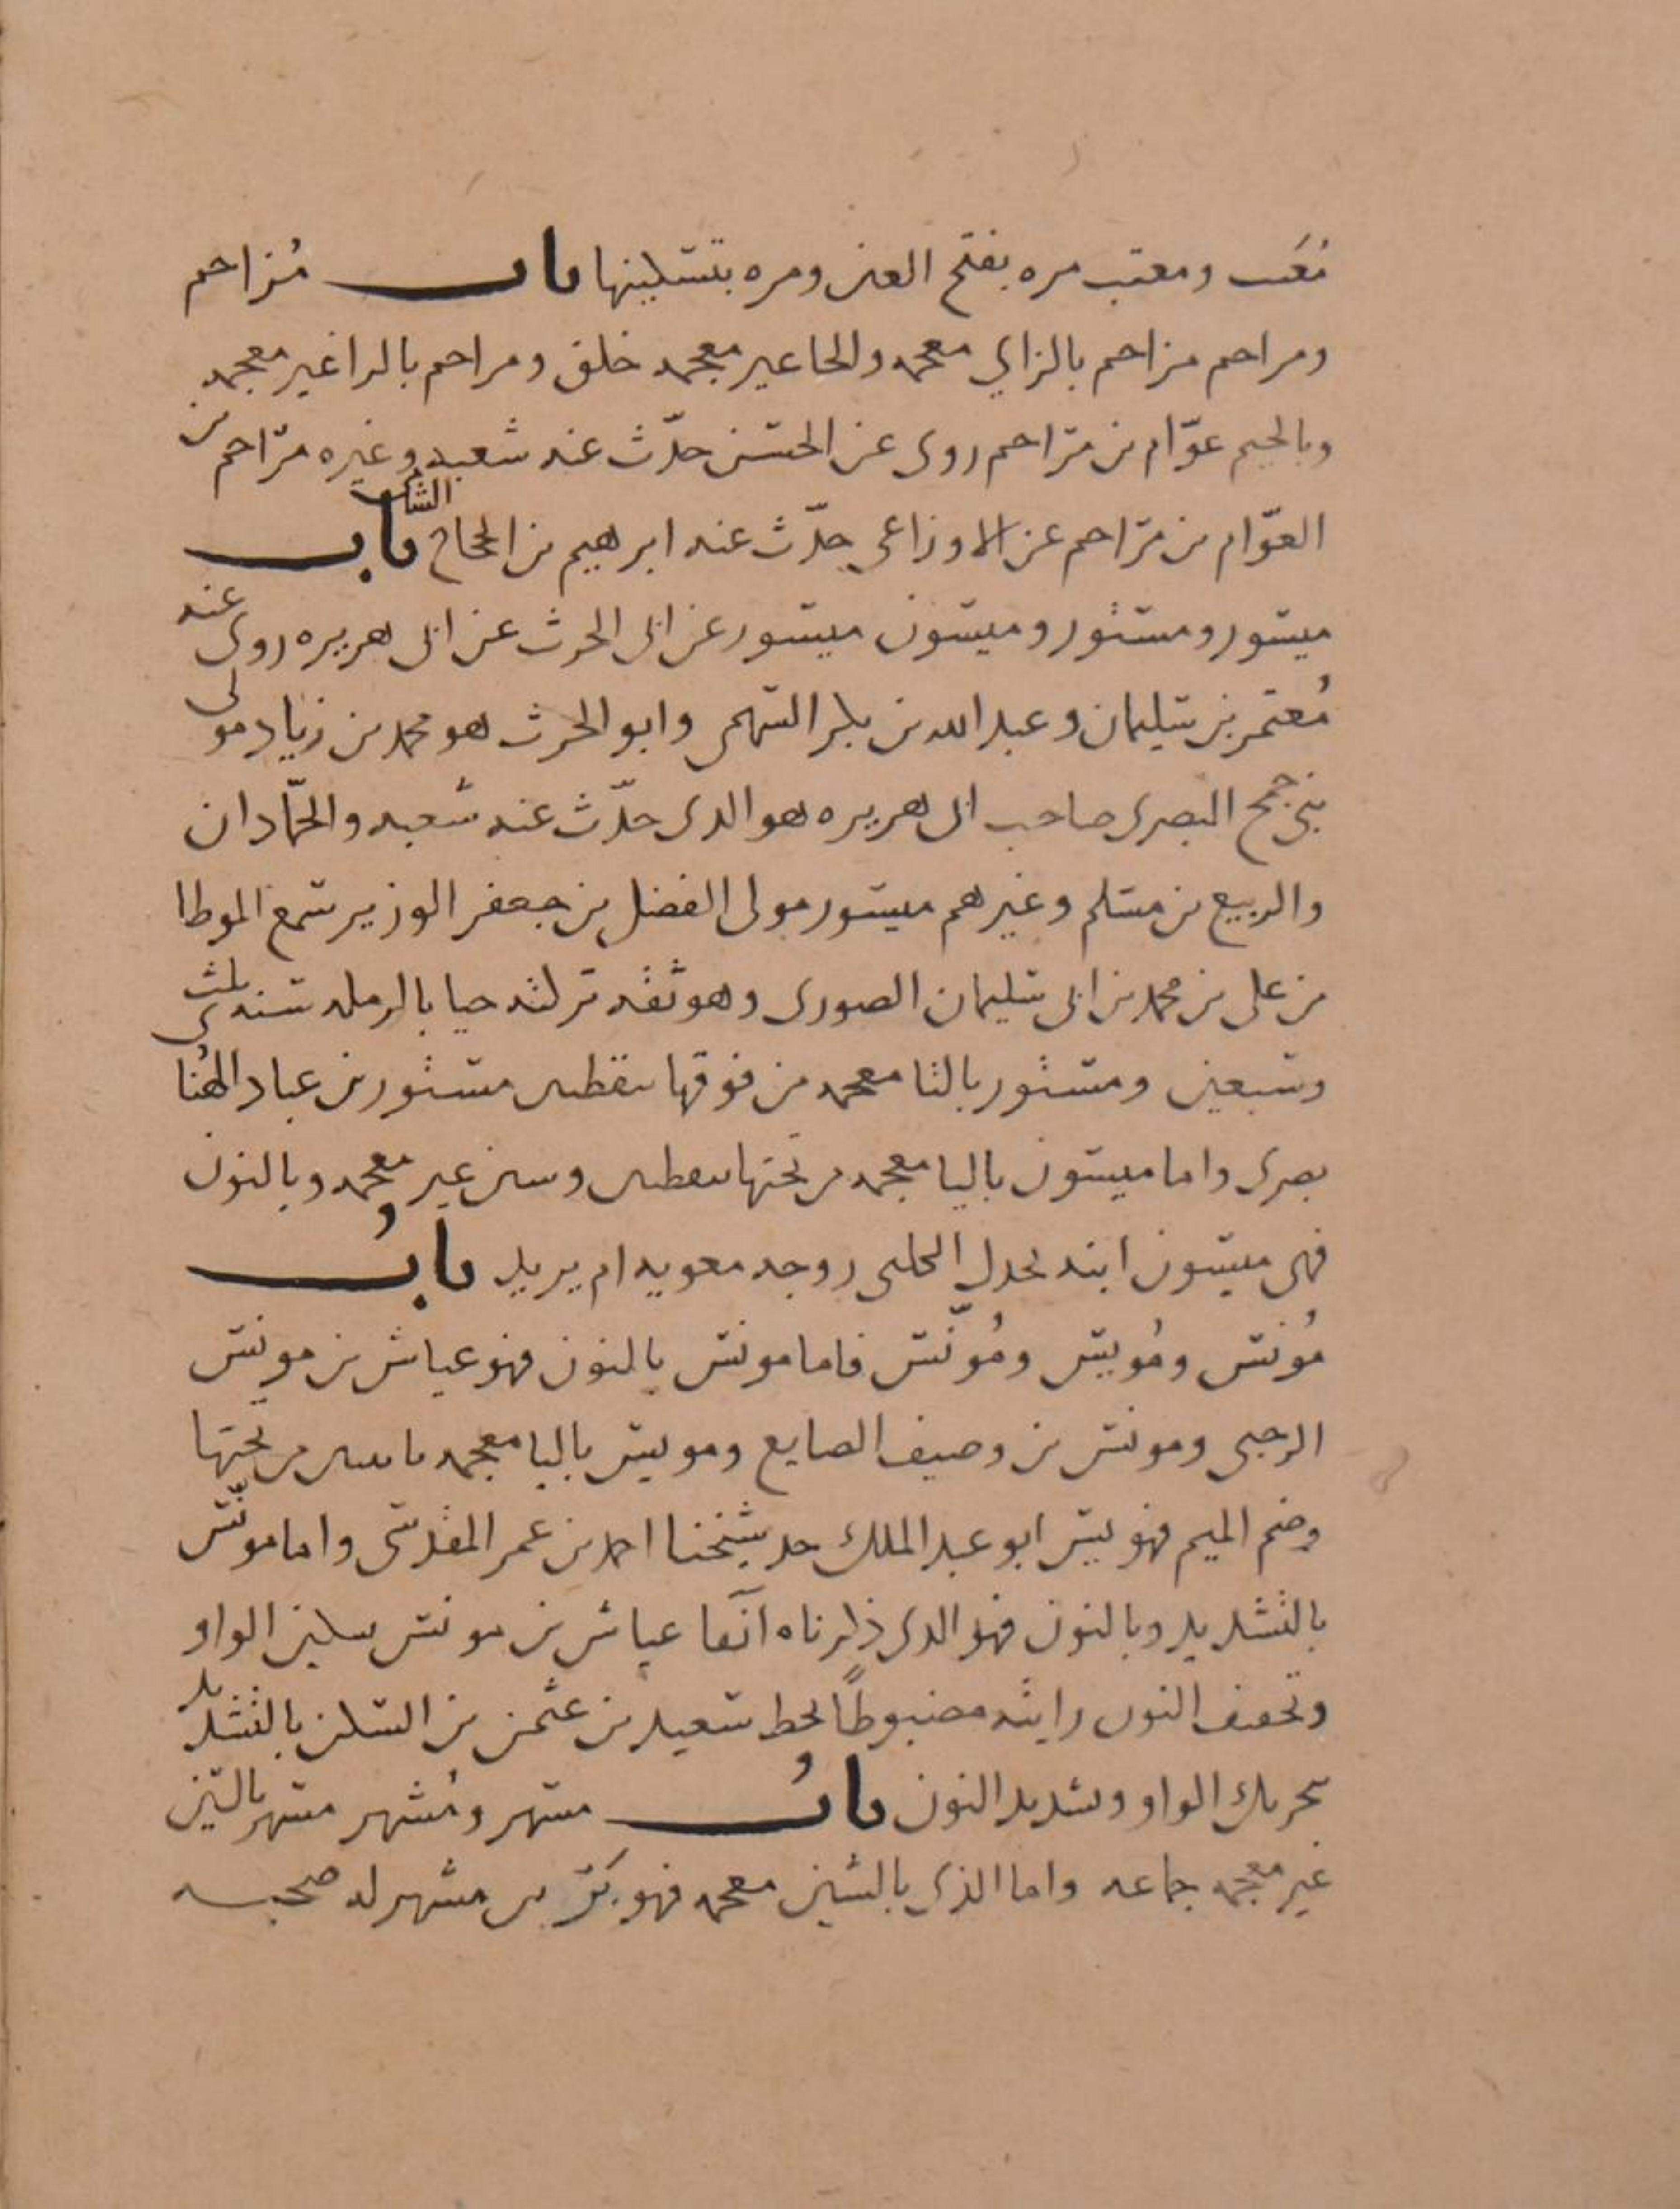 مُعَتب ومعتب مره بفتح العين ومره بتسكينها باب مُزاحم
ومراجم مزاحم بالزاي معجمه والحا غير معجمه خلق ومراجم بالرا غير معجمه
وبالجيم عوّام بن مراجم روى عن الحسن حدّث عنه شعبه وغيره مراجم بن
العوّام بن مراجم عن الاوزاعي حدّث عنه ابرهيم بن الحجاج الشامي بابٌ
ميسور ومستور وميسون ميسور عن ابى الحرث عن ابى هريره روى عنه
مُعتمر بن سليمان وعبد الله بن بكر السهمى وابو الحرث هو محمد بن زياد مولى
بنى جمح البصرى صاحب ابى هريره هو الذى حدّث عنه شعبه والحمّادان
والربيع بن مسلم وغيرهم ميسور مولى الفضل بن جعفر الوزير سمع الموطا
من على بن محمد بن ابى سليمان الصورى وهو ثقه تركته حيا بالرمله سنه ثلث
وسبعين ومستور بالتا معجمه من فوقها بنقطتين مستور بن عباد الهُنائى
بصرى واما ميسون باليا معجمه من تحتها بنقطتين وسين غير معجمه وبالنون
فهى ميسون ابنه بحدل الكلبى زوجه معويه ام يزيد بابٌ
مُونس ومُويس ومُوَنّس فاما مونس بالنون فهو عياش بن مونس
الرحبى ومونس بن وصيف الصايغ ومويس باليا معجمه باثنتين من تحتها
وضم الميم فهو يبس ابو عبد الملك جد شيخنا احمد بن عمر المقدسى واما مونّس
بالتشديد وبالنون فهو الذى ذكرناه آنفا عياش بن مونس بسكون الواو
وتخفيف النون رايته مضبوطًا بخط سعيد بن عثمن بن السكن بالتشديد
بتحريك الواو وتشديد النون بابٌ مسهر ومُشهر مسهر بالسين
غير معجمه جماعه واما الذى بالشين معجمه فهو بَرّ بن مشهر له صحبه